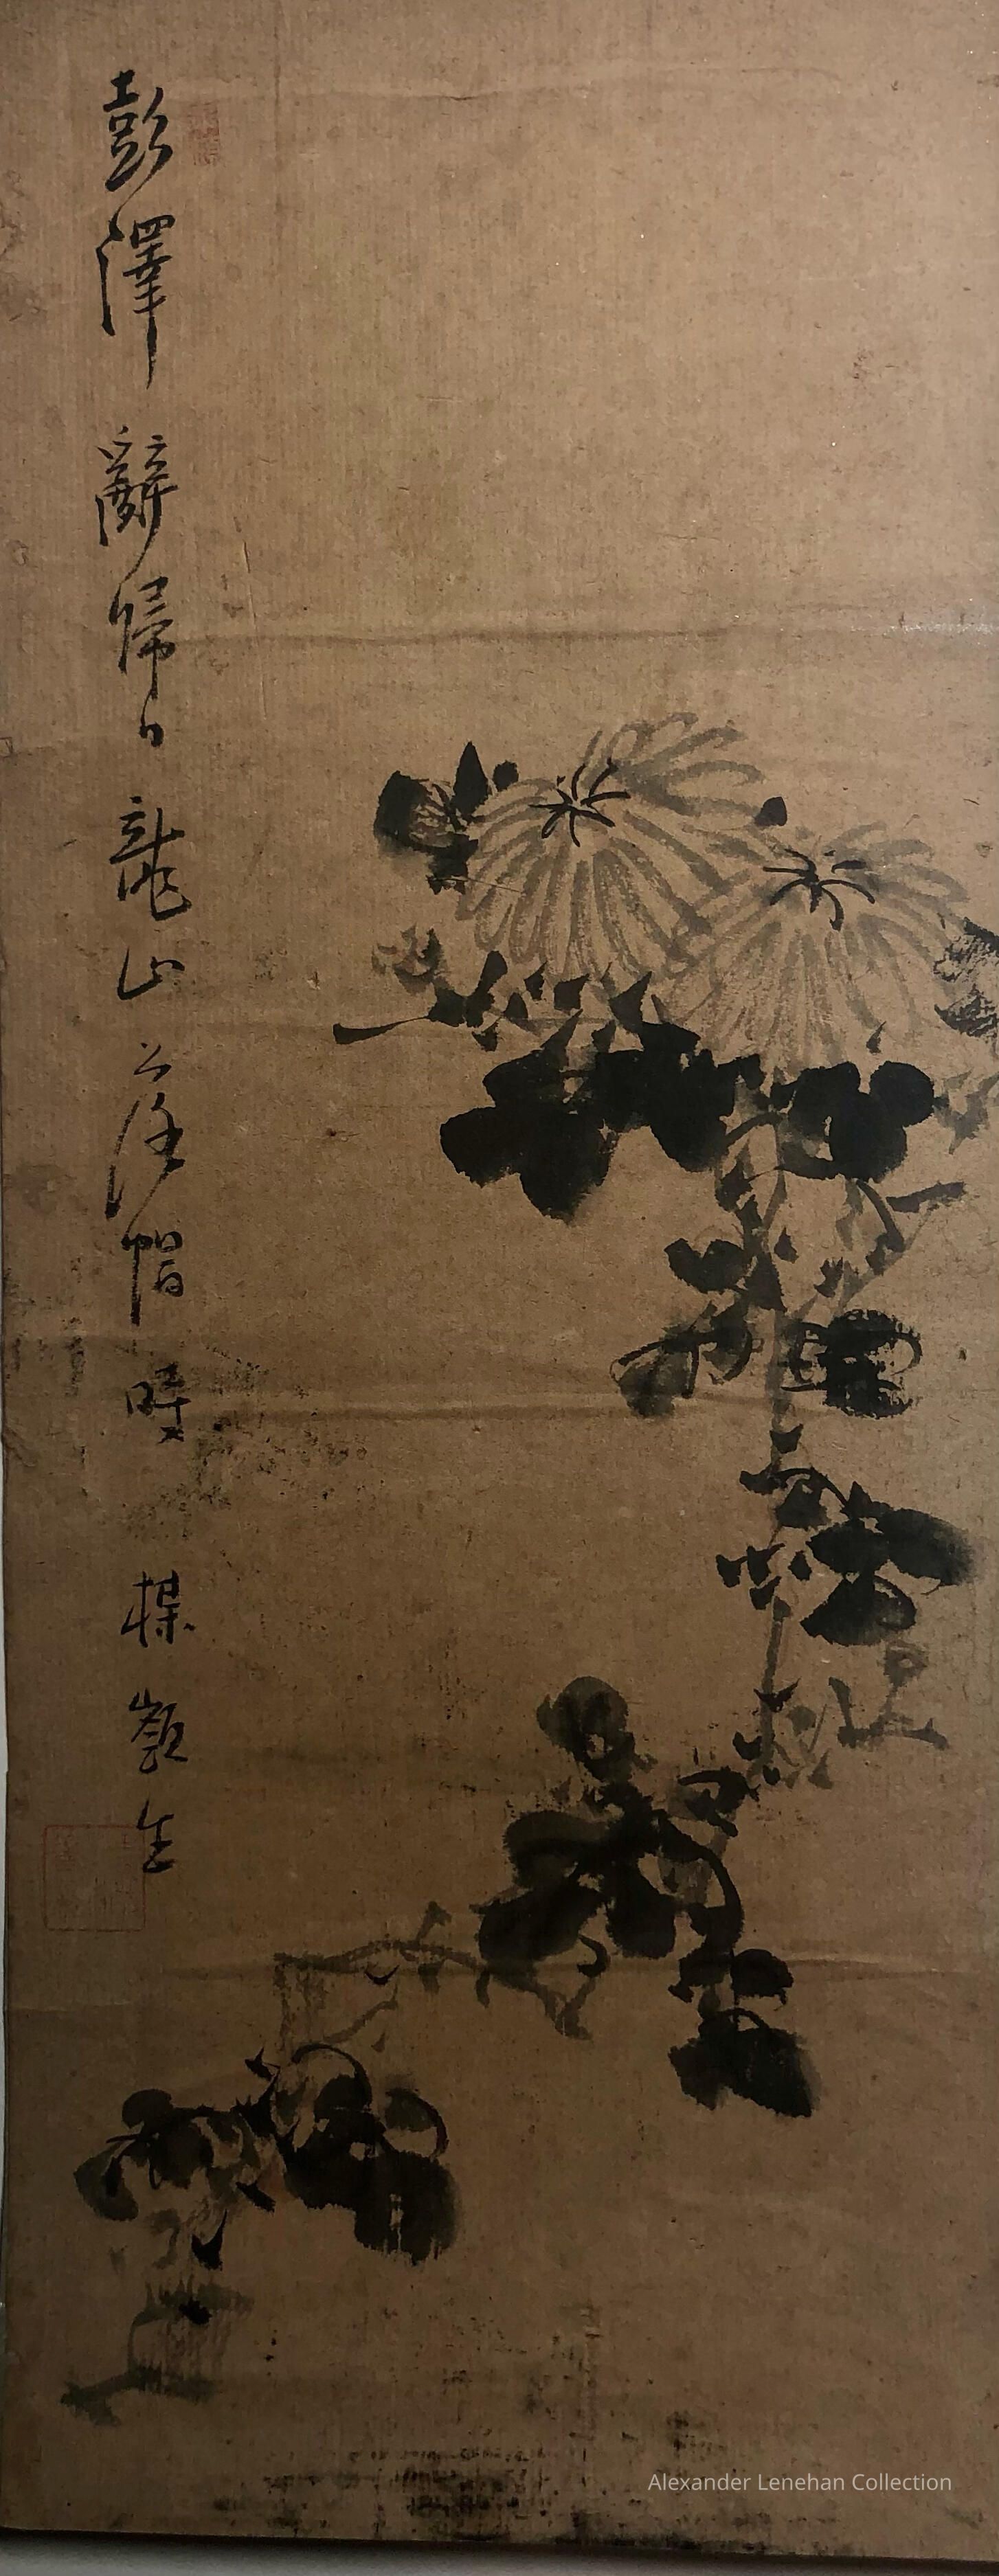 彭澤辭歸日龍山落帽時
楳嶺生
Alexander Lenehan Collection